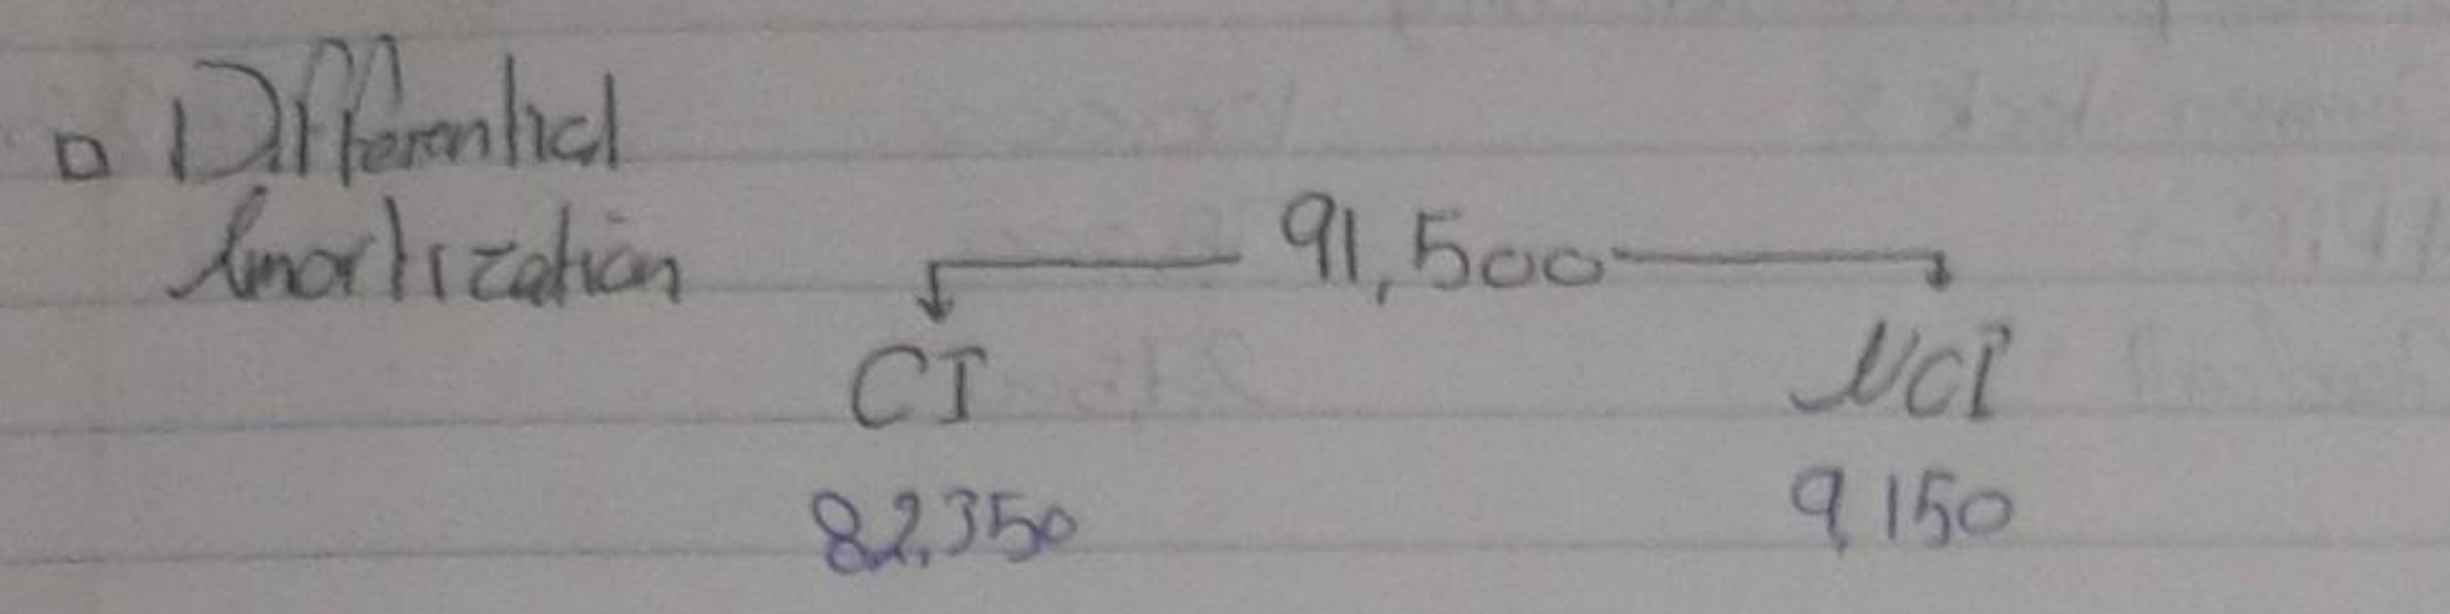 Differential
Amortization
91,500
CI NCI
82,350 9,150